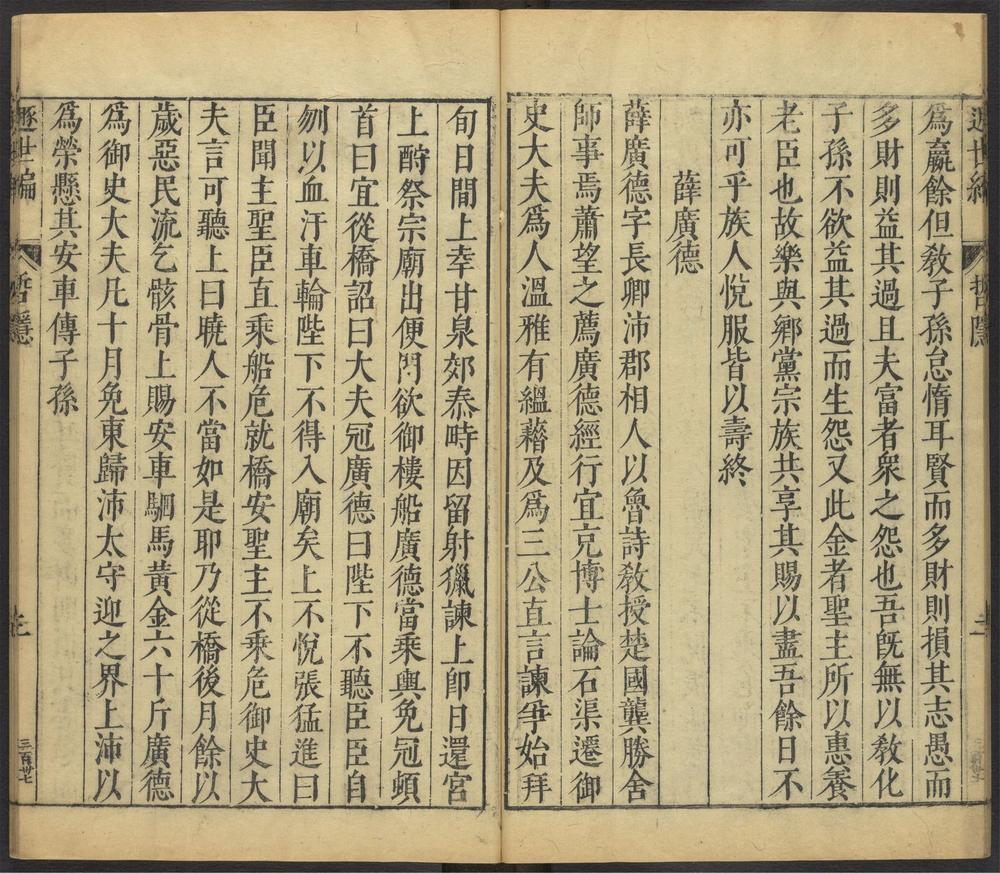 爲贏餘但敎子孫怠惰耳賢而多財則損其志愚而
多財則益其過且夫富者衆之怨也吾旣無以敎化
子孫不欲益其過而生怨又此金者聖主所以惠養
老臣也故樂與鄉黨宗族共享其賜以盡吾餘日不
亦可乎族人悅服皆以壽終
薛廣德
薛廣德字長卿沛郡相人以魯詩敎授楚國龔勝舍
師事焉蕭望之薦廣德經行宜充博士論石渠遷御
史大夫爲人溫雅有縕藉及爲三公直言諫爭始拜
旬日間上幸甘泉郊泰畤因留射獵諫上卽日還宮
上酧祭宗廟出便門欲御樓船廣德當乗輿免冠頓
首曰宜從橋詔曰大夫冠廣德曰陛下不聽臣臣自
刎以血汙車輪陛下不得入廟矣上不悅張猛進曰
臣聞主聖臣直乘船危就橋安聖主不乘危御史大
夫言可聽上曰曉人不當如是耶乃從橋後月餘以
歲惡民流乞骸骨上賜安車駟馬黃金六十斤廣德
爲御史大夫凡十月免東歸沛太守迎之界上沛以
爲榮懸其安車傳子孫
遯世編 哲隱 三百卅七